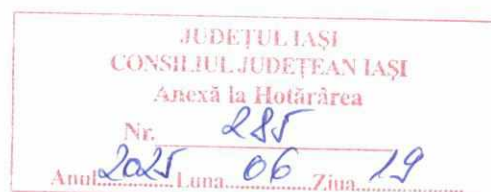 JUDEȚUL IAȘI
CONSILIUL JUDEȚEAN IAȘI
Anexă la Hotărârea
Nr. 285
Anul 2025 Luna 06 Ziua 19